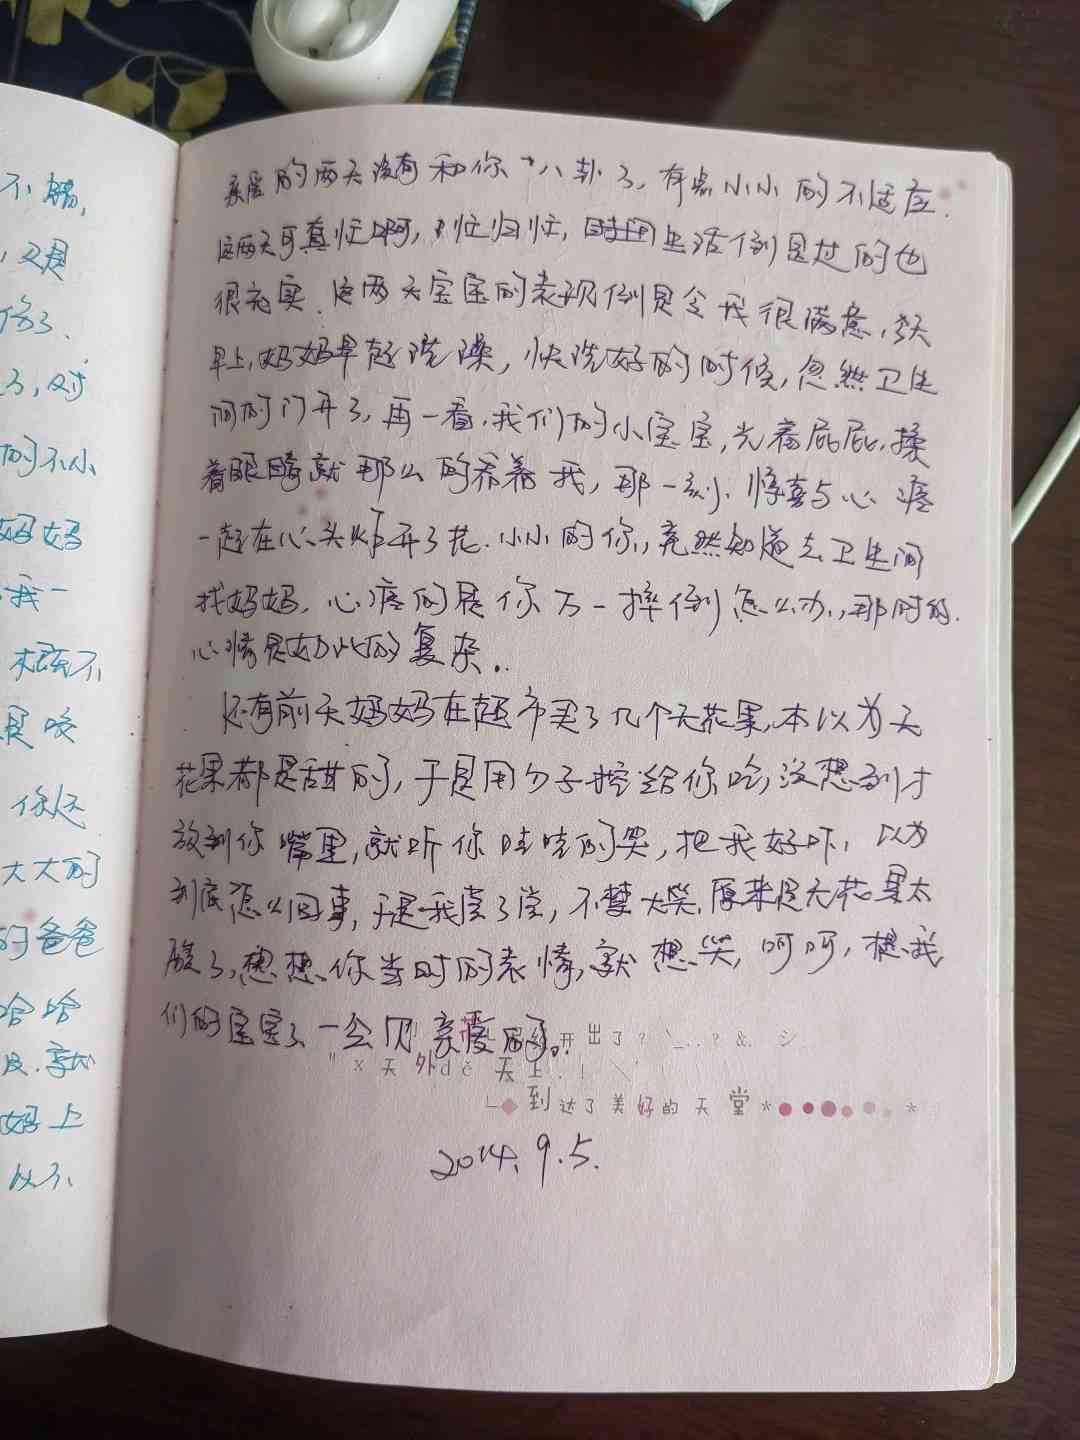 不
，又是
了，对
的不小
妈妈
我一
是咬
你还
大大的
的爸爸
哈哈
妈上
以不
的两天没有和你八卦了，有点小小的不适应．
这两天可真忙啊，忙归忙，时间生活倒是过的也
很充实．这两天宝宝的表现倒是令我很满意，
早上，妈妈早起洗澡，快洗好的时候，忽然卫生
间的门开了，再一看，我们的小宝宝，光着屁屁，揉
着眼睛就那么的看着我，那一刻，惊喜与心疼
一起在心头炸开了花．小小的你，竟然知道去卫生间
找妈妈，心疼的是你万一摔倒怎么办，那时的
心情是如此的复杂．．
还有前天妈妈在超市买了几个无花果，本以为无
花果都是甜的，于是用勺子挖给你吃，没想到才
放到你嘴里，就听你哇哇的哭，把我好吓，以为
到底怎么回事，于是我尝了尝，不禁大笑，原来是无花果太
酸了，想想你当时的表情，就想笑，呵呵，想我
们的宝宝了，一会见亲爱的。
开出了？\_..？&．シ
"x天外dě天上．！＼＇
└◆到达了美好的天堂*●●●●●●*
2014.9.5.